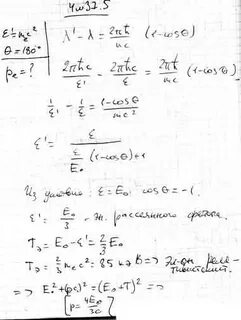 Чи32.5
ε=mₑc²
θ=180°
pₑ=?
λ'-λ=2πħ/mc (1-cosθ)
2πħc/ε' - 2πħc/ε = 2πħ/mc (1-cosθ)
1/ε' - 1/ε = 1-cosθ/mc²
ε' = ε/(ε/E₀ (1-cosθ)+1)
Из условия: ε=E₀ cosθ=-1.
ε' = E₀/3 - эн. рассеянного фотона.
Tэ = E₀-ε' = 2/3 E₀
Tэ = 2/3 mₑc² = 85 кэВ => Эл-он реля-
тивистский.
=> E₀²+(pc)² = (E₀+T)² =>
[p = 4E₀/3c]